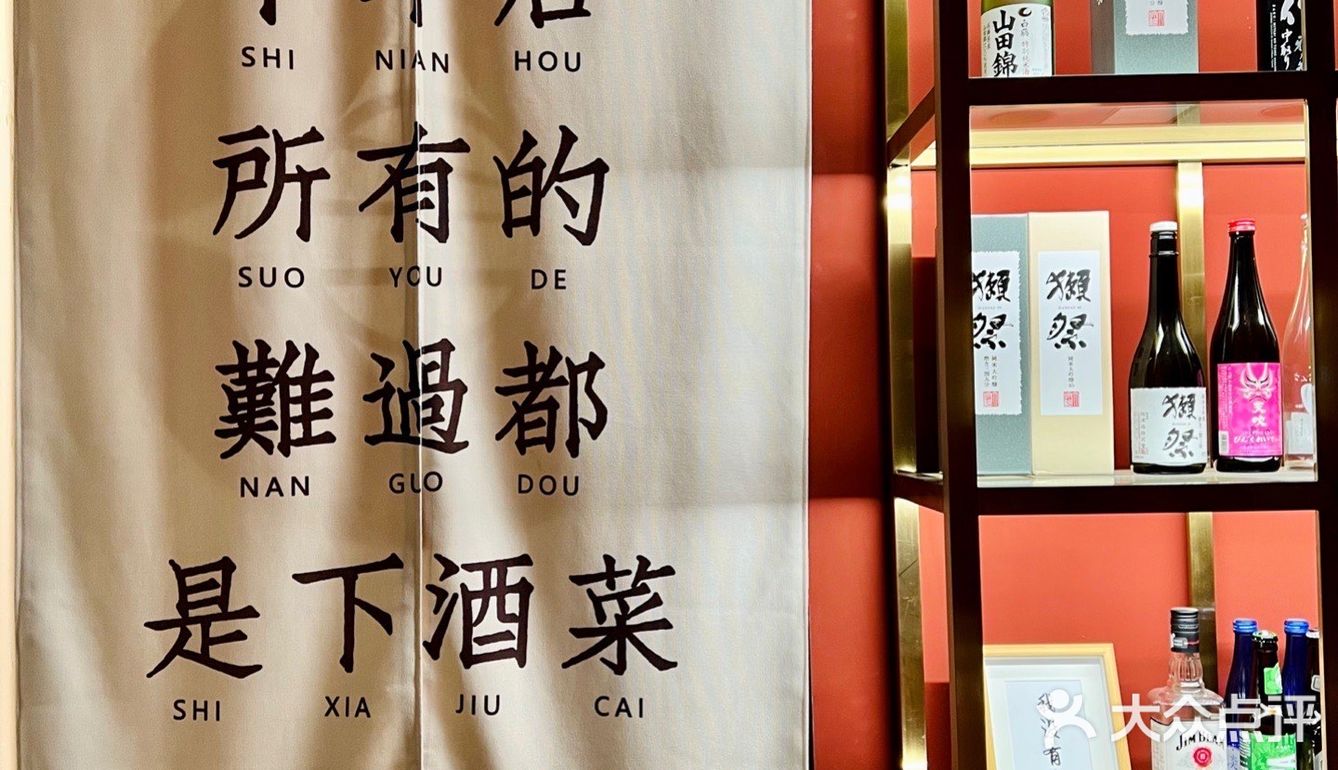 十年后
SHI NIAN HOU
所有的
SUO YOU DE
難過都
NAN GUO DOU
是下酒菜
SHI XIA JIU CAI
山田錦
白鶴 特別純米酒
獺祭
獺祭
純米大吟醸
獺祭
天吹
JIM BEAM
大众点评